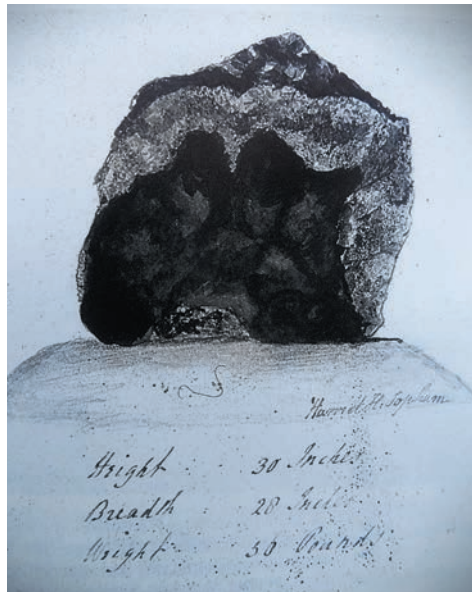 Harriet H. Topham
Height : 30 Inches
Breadth : 28 Inches
Weight : 36 Pounds